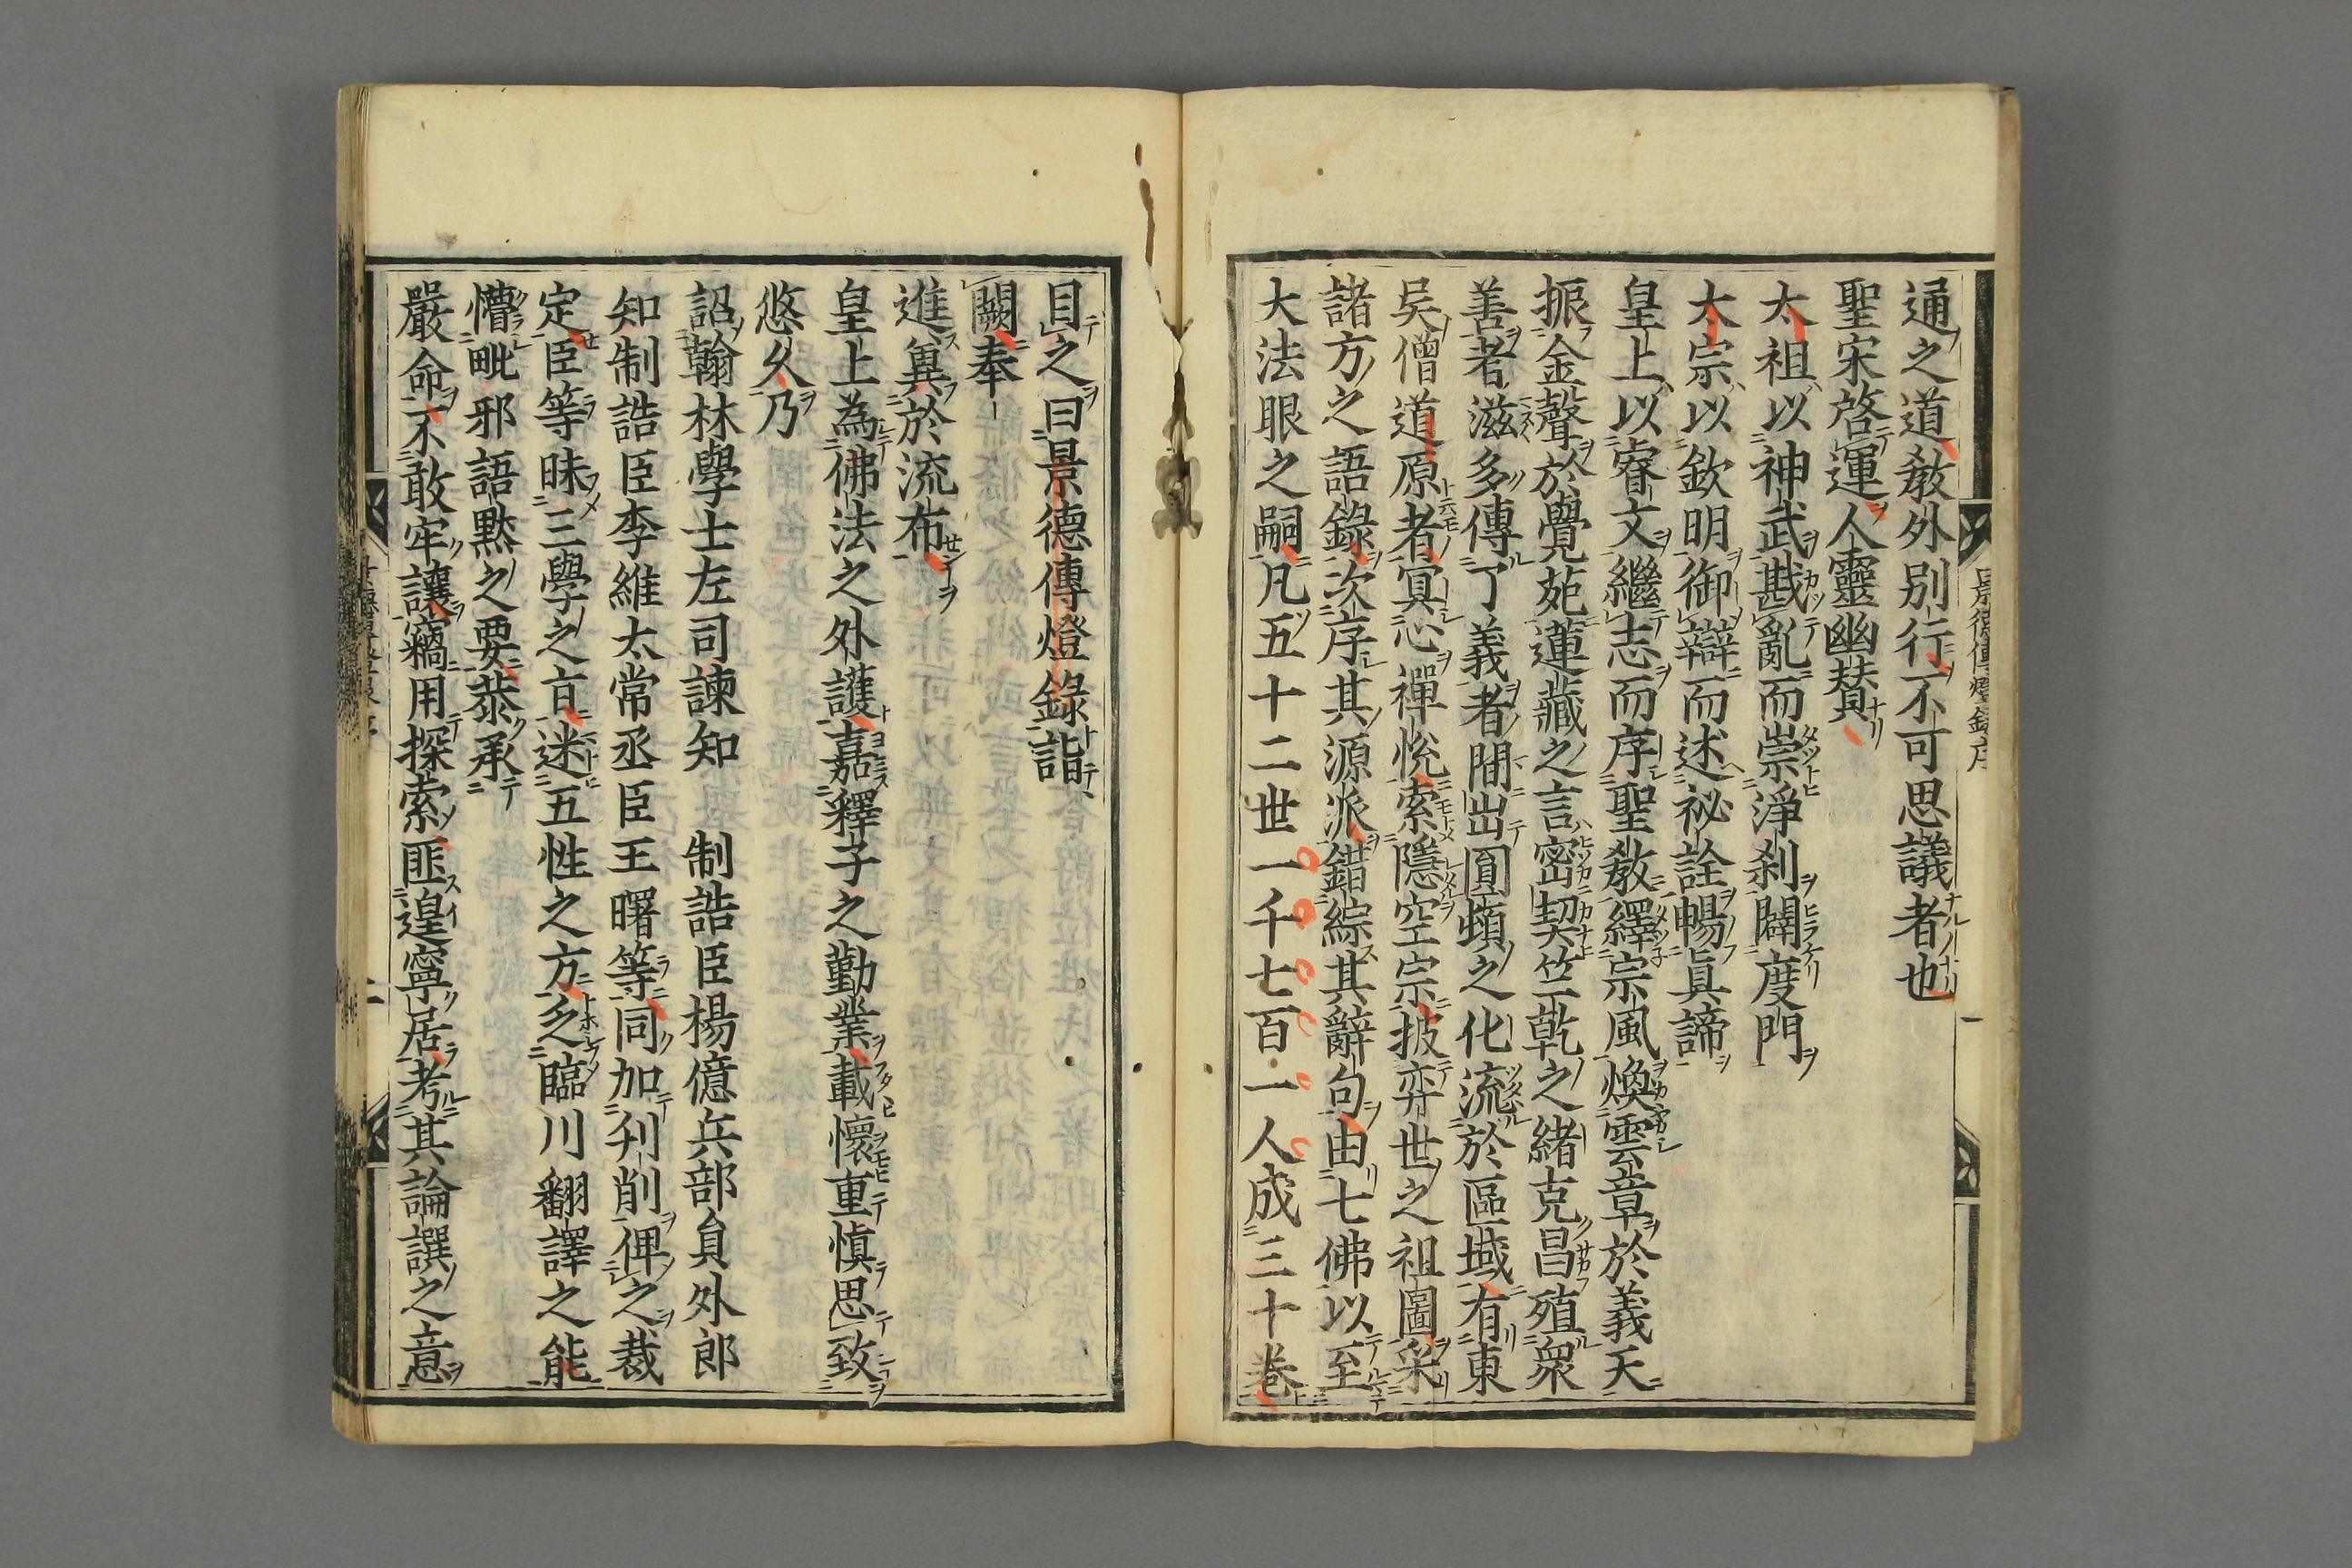 景德傳燈錄序
一
通之道敎外別行不可思議者也
聖宋啓運人靈幽賛
太祖以神武戡亂而崇淨刹闢度門
太宗以欽明御辯而述祕詮暢眞諦
皇上以睿文繼志而序聖敎繹宗風煥雲章於義天
振金聲於覺苑蓮藏之言密契竺乾之緒克昌殖衆
善者滋多傳了義者閒出圓頓之化流於區域有東
吳僧道原者冥心禪悅索隱空宗披弈世之祖圖采
諸方之語錄次序其源派錯綜其辭句由七佛以至
大法眼之嗣凡五十二世一千七百一人成三十巻
目之曰景德傳燈錄詣
闕奉
進冀於流布
皇上為佛法之外護嘉釋子之勤業載懷重愼思致
悠久乃
詔翰林學士左司諫知　制誥臣楊億兵部貟外郎
知制誥臣李維太常丞臣王曙等同加刋削俾之裁
定臣等昧三學之㫖迷五性之方乏臨川翻譯之能
懵毗邪語黙之要恭承
嚴命不敢牢讓竊用探索匪遑寧居考其論譔之意
二